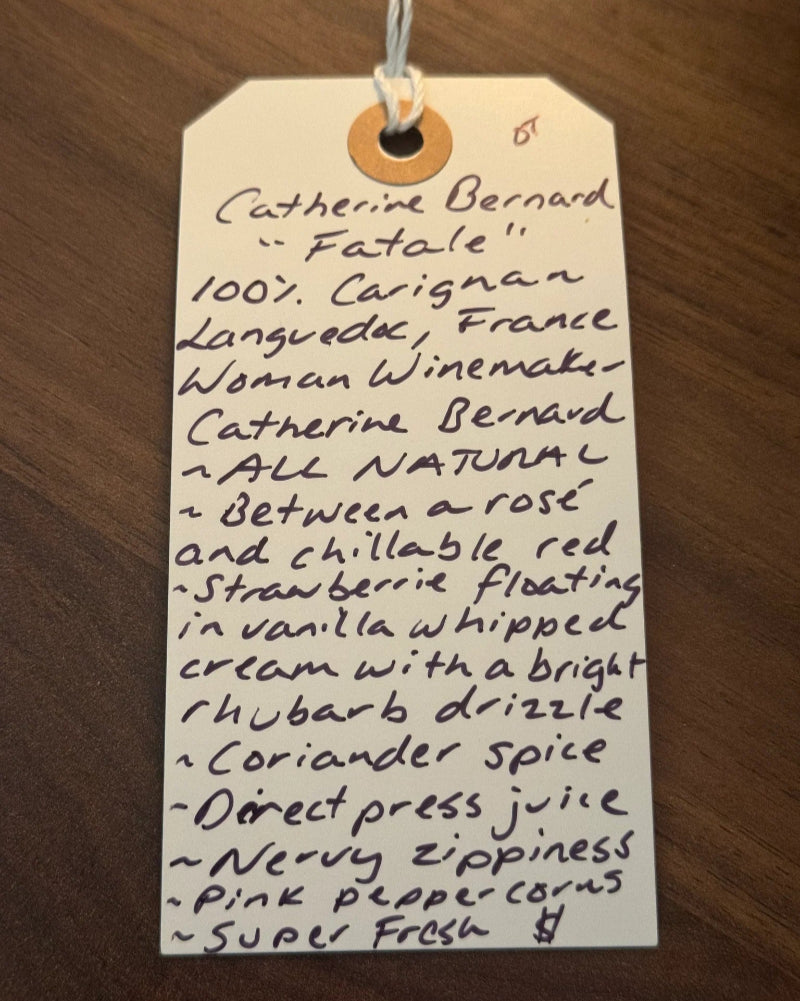 Catherine Bernard
"Fatale"
100% Carignan
Languedoc, France
Woman Winemaker
Catherine Bernard
~ ALL NATURAL
~ Between a rosé
and chillable red
~ Strawberrie floating
in vanilla whipped
cream with a bright
rhubarb drizzle
~ Coriander spice
~ Direct press juice
~ Nervy zippiness
~ Pink peppercorns
~ Super Fresh $